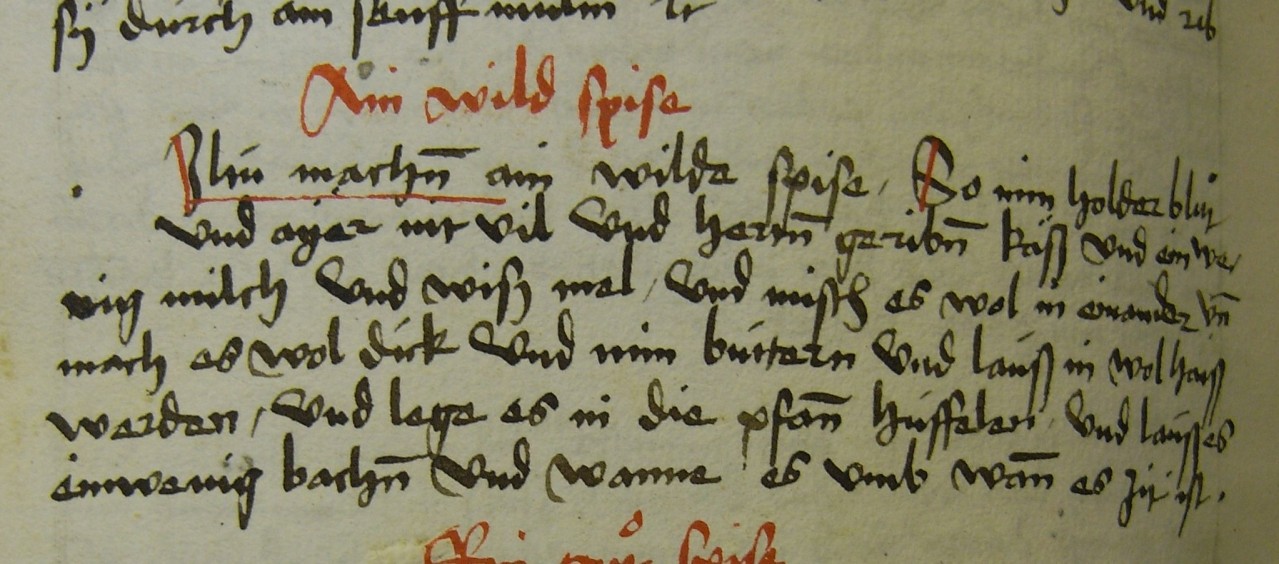 sÿ durch ain und rib
Ain wild spise
machn̄ ain wilde spise. So nim holderblüt
vnd ayer nit vil vnd hertn̄ geribn̄ käß vnd ein we
nig milch vnd wiß mel, vnd misch es wol in einander vn̄
mach es wol dick vnd nim buttern vnd lauß in wol haiß
werden, vnd lege es in die pfan̄ hüffelen vnd lauß es
ein wenig bachn̄ vnd wanne es vmb wan̄ es zit ist.
spise